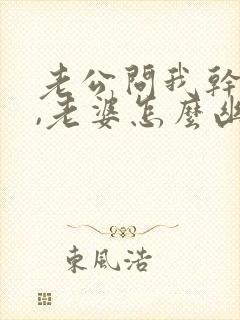 老公問我幹
,老婆怎麼幽
東風浩